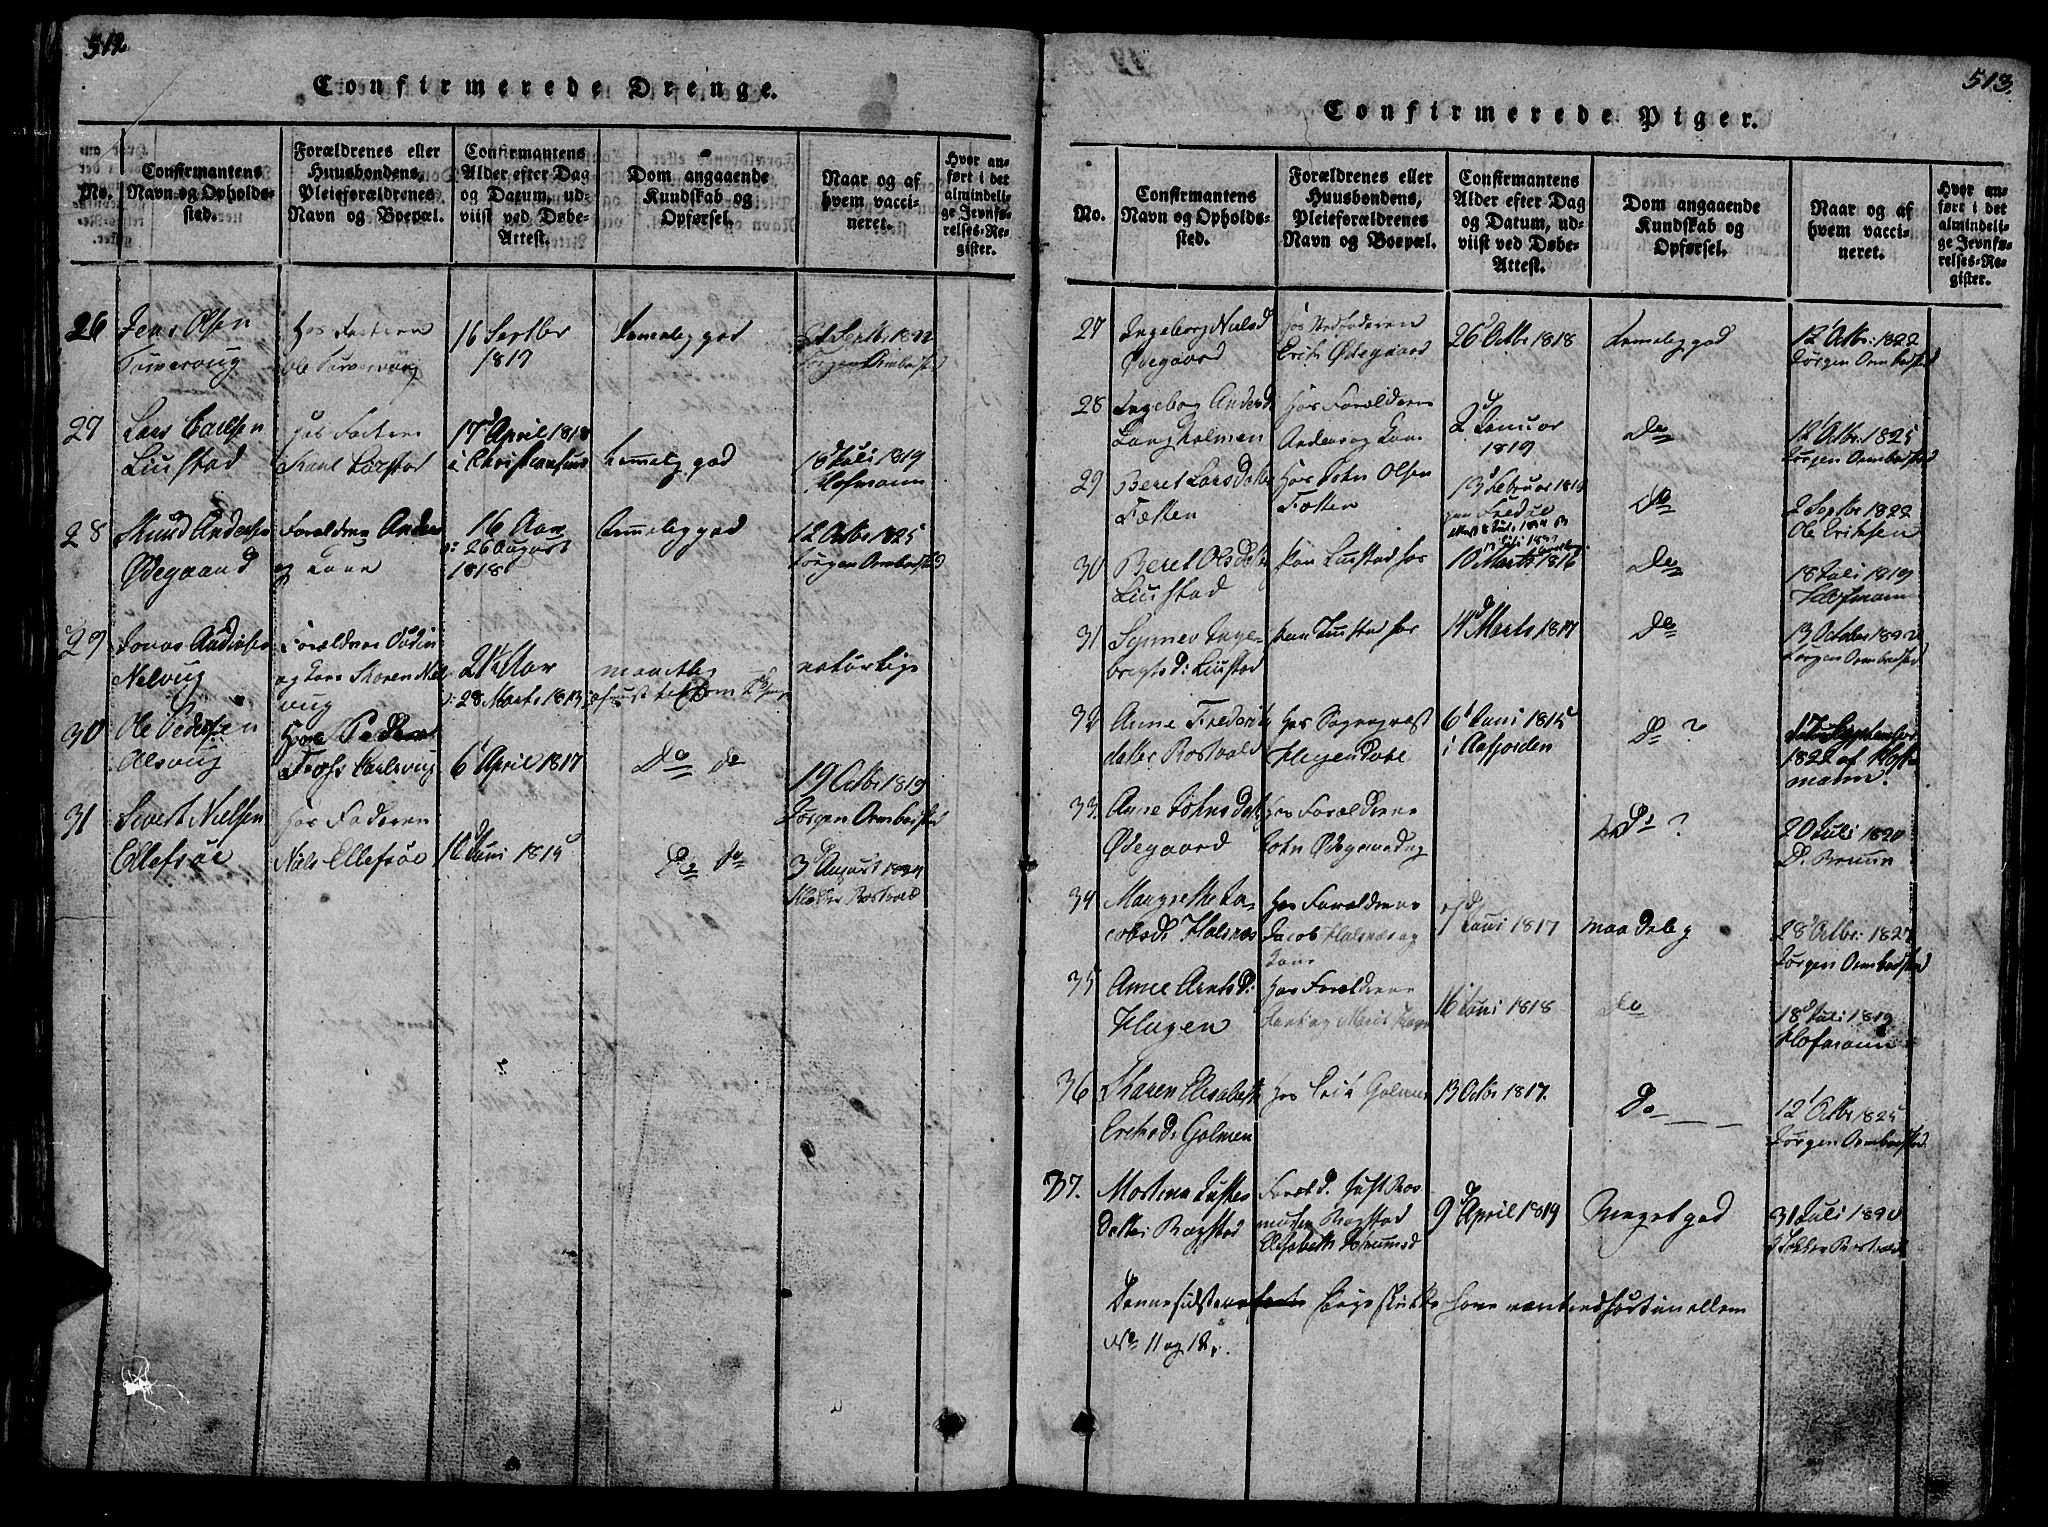 512
Confirmerede Drenge.
No.
Confirmantens
Navn og Opholds-
sted.
Forældrenes eller
Huusbondens,
Pleieforældrenes
Navn og Boepæl.
Confirmantens
Alder efter Dag
og Datum, ud-
viist ved Døbe-
Attest.
Dom angaaende
Kundskab og
Opførsel.
Naar og af
hvem vacci-
neret.
Hvor an-
ført i det
almindeli-
ge Jevnfø-
relses-Re-
gister.
26
Jens Olsen
hos Faderen
Ole
16 Septbr
1817
temelig god
Jørgen Ormbostad
27
Lars Carlsen
Liustad
17 April 1818
i Christiansund
temmelig god
18 Juli 1819
Hofmann
28
Knud Andersen
Ødegaard
Forældrene Anders
og Kone
16 Aar
26 August
1818
temmelig god
12 Octbr 1825
Jørgen Ormbostad
29
Jonas
Nelvug
Forældrene
og Kone Karen Nel-
vug
21 Aar
28 Marts 1813
maadelig
naturlige
30
Ole Pedersen
Alsvug
Hos Peder
6 April 1817
Do do
19 Octbr 1819
Jørgen Ormbostad
31
Sivert Nielsen
Ellefsøe
hos Faderen
Niels Ellefsøe
12 Juni 1815
Do do
3 August 1824
Rostvold
513.
Confirmerede Piger.
No.
Confirmantens
Navn og Opholds-
sted.
Forældrenes eller
Huusbondens,
Pleieforældrenes
Navn og Boepæl.
Confirmantens
Alder efter Dag
og Datum, ud-
viist ved Døbe-
Attest.
Dom angaaende
Kundskab og
Opførsel.
Naar og af
hvem vacci-
neret.
Hvor an-
ført i det
almindeli-
ge Jevnfø-
relses-Re-
gister.
27
Ingeborg Nielsd
Ødegaard
hos Stedfaderen
Erik Ødegaard
26 Octbr 1818
temelig god
12 Octbr: 1822
Jørgen Ormbostad
28
Ingeborg Andersd
Langholmen
hos Forældrene
Anders og Kone
2 Januar
1819
Do
12 Octbr: 1825
Jørgen Ormbostad
29
Beret Larsdatter
Fætten
hos John Olsen
Fætten
13 Februar 1819
Do
2 Septbr 1822
Ole Eriksen
30
Beret Olsdatter
Liustad
paa Liustad hos
10 Marts 1816
Do
18 Juli 1819
Hofmann
31
Synnev Inge-
brigtsd: Liustad
paa Liustad hos
14 Marts 1817
Do
13 October 1822
Jørgen Ormbostad
32
Anne Frederik
datter Rostvold
hos Sogneprest
6 Juni 1815
i Aafjorden
Do ?
September
1822 af Hof-
mann.
33.
Anne Johnsdatt
Ødegaard
hos Forældrene
John Ødegaard og
Do ?
20 Juli 1820
D. Bruun
34
Margrethe Ja-
cobsd: Halsnæs
hos Forældrene
Jacob Halsnæs og
Kone
7 Juni 1817
maadelig
28 Octbr: 1827
Jørgen Ormbostad
35
Anne Arntsd:
Hagen
hos Forældrene
Arnt og Marit Hagen
16 Juni 1818
do
18 Juli 1819
Hofmann
36
Karen Elisabeth
Eriksd: Golmen
hos Erik Golmen
13 Octbr 1817.
Do
12 Octbr 1825
Jørgen Ormbostad
37.
Mortina Justes
datter Bægstad
Foræld. Just Ras-
mussen Bægstad
Elisabeth
9 April 1819
Meget god
31 Juli 1820
Rostvold
Denne sidste Pige skulde have været indført imellem
No 11 og 12.